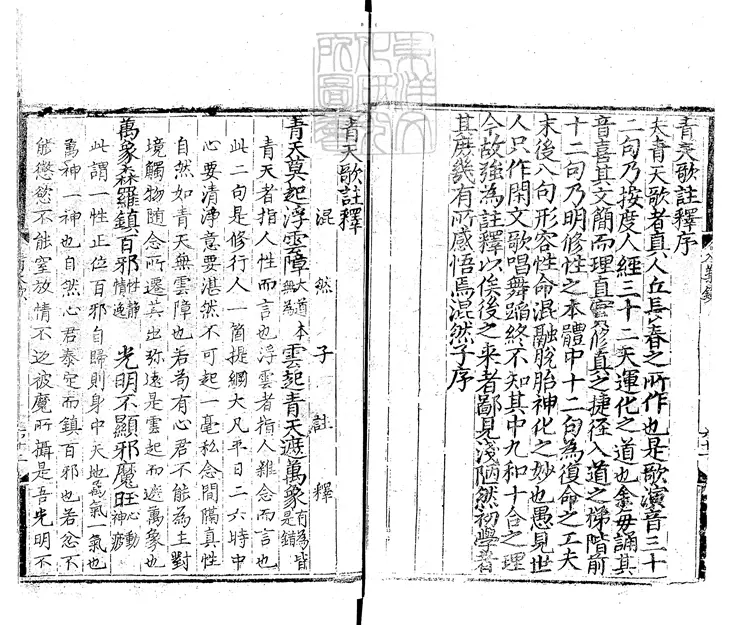 青天歌註釋序
夫青天歌者真人丘長春之所作也是歌演音三十
二句乃按度人經三十二天運化之道也余每誦其
音喜其文簡而理直實修真之捷徑入道之梯階前
十二句乃明修性之本體中十二句為復命之工夫
末後八句形容性命混融脫胎神化之妙也愚見世
人只作閑文歌唱舞蹈終不知其中九和十合之理
今故強為註釋以俟後之来者鄙見淺陋然初學者
其庶幾有所感悟焉混然子序
青天歌註釋
混然子註釋
青天莫起浮雲障大道本無為雲起青天遮萬象有為皆是錯
青天者指人性而言也浮雲者指人雜念而言也
此二句是修行人一箇提綱大凡平日二六時中
心要清淨意要湛然不可起一毫私念間隔真性
自然如青天無雲障也若苟有心君不能為主對
境觸物隨念所遷其出弥遠是雲起而遮萬象也
萬象森羅鎮百邪性靜情逸光明不顯邪魔旺心動神疲
此謂一性正位百邪自歸則身中天地為氣一氣也
萬神一神也自然心君泰定而鎮百邪也若忿不
能懲慾不能窒放情不返被魔所攝是吾光明不